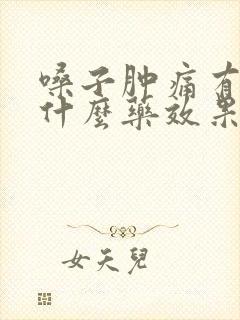 嗓子肿痛有
什麼藥效果
女天兒